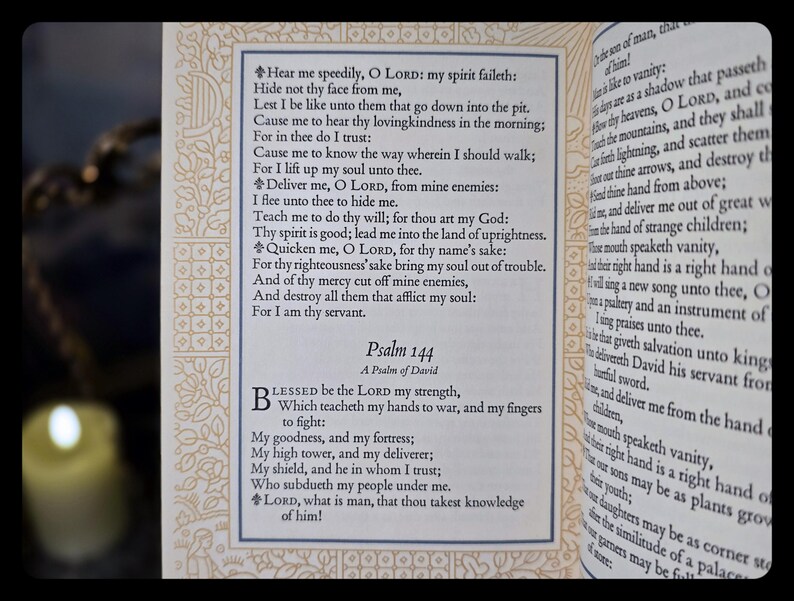 Hear me speedily, O LORD: my spirit faileth:
Hide not thy face from me,
Lest I be like unto them that go down into the pit.
Cause me to hear thy lovingkindness in the morning;
For in thee do I trust:
Cause me to know the way wherein I should walk;
For I lift up my soul unto thee.
Deliver me, O LORD, from mine enemies:
I flee unto thee to hide me.
Teach me to do thy will; for thou art my God:
Thy spirit is good; lead me into the land of uprightness.
Quicken me, O LORD, for thy name's sake:
For thy righteousness' sake bring my soul out of trouble.
And of thy mercy cut off mine enemies,
And destroy all them that afflict my soul:
For I am thy servant.
Psalm 144
A Psalm of David
BLESSED be the LORD my strength,
Which teacheth my hands to war, and my fingers
to fight:
My goodness, and my fortress;
My high tower, and my deliverer;
My shield, and he in whom I trust;
Who subdueth my people under me.
LORD, what is man, that thou takest knowledge
of him!
Or the son of man, that
of him!
Man is like to vanity:
His days are as a shadow that passeth
Bow thy heavens, O LORD, and
Touch the mountains, and they shall
Cast forth lightning, and scatter them
Shoot out thine arrows, and destroy
Send thine hand from above;
me, and deliver me out of great
From the hand of strange children;
Whose mouth speaketh vanity,
And their right hand is a right hand
I will sing a new song unto thee, O
Upon a psaltery and an instrument of
I sing praises unto thee.
It is he that giveth salvation unto
Who delivereth David his servant from
hurtful sword.
me, and deliver me from the hand
children,
Whose mouth speaketh vanity,
And their right hand is a right hand of
That our sons may be as plants
their youth;
our daughters may be as corner
after the similitude of a
our garners may be full
of store: